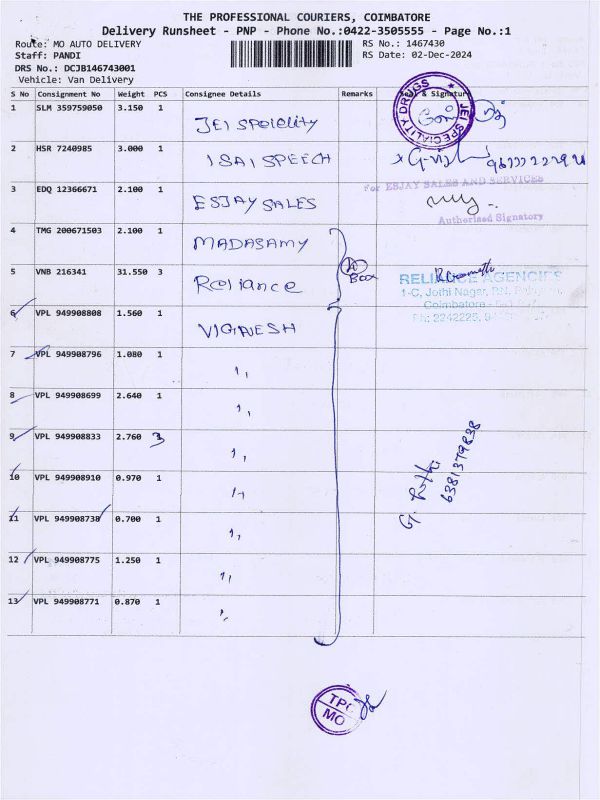 THE PROFESSIONAL COURIERS, COIMBATORE
Delivery Runsheet - PNP - Phone No.:0422-3505555 - Page No.:1
Route: MO AUTO DELIVERY
RS No.: 1467430
Staff: PANDI
RS Date: 02-Dec-2024
DRS No.: DCJB146743001
Vehicle: Van Delivery
S No Consignment No Weight PCS Consignee Details Remarks Seal & Signature
1 SLM 359759050 3.150 1 JEI SPCIELITY
JEI SPECIALITY DRUGS
2 HSR 7240985 3.000 1 ISAI SPEECH
3 EDQ 12366671 2.100 1 ESJAY SALES
For ESJAY SALES AND SERVICES
Authorised Signatory
4 TMG 200671503 2.100 1 MADASAMY
5 VNB 216341 31.550 3 Reliance
BOX
RELIANCE AGENCIES
1-C, Jothi Nagar,
Coimbatore
Ph: 2242225,
6 VPL 949908808 1.560 1 VIGNESH
7 VPL 949908796 1.080 1 ,,
8 VPL 949908699 2.640 1 ,,
9 VPL 949908833 2.760 3 ,,
10 VPL 949908910 0.970 1 ,,
11 VPL 949908738 0.700 1 ,,
12 VPL 949908775 1.250 1 ,,
13 VPL 949908771 0.870 1 ,,
6381379838
TPC
MO